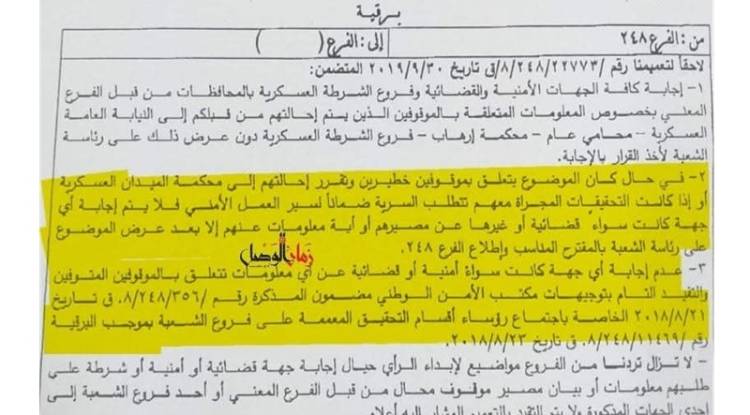 برقية
من: الفرع ٢٤٨ إلى: الفرع ( )
لاحقاً لتعميمنا رقم /٢٢٧٧٣/٨/٢٤٨/ق تاريخ ٢٠١٩/٩/٣٠ المتضمن:
١- إجابة كافة الجهات الأمنية والقضائية وفروع الشرطة العسكرية بالمحافظات من قبل الفرع
المعني بخصوص المعلومات المتعلقة بالموقوفين الذين يتم إحالتهم من قبلكم إلى النيابة العامة
العسكرية – محامي عام – محكمة إرهاب – فروع الشرطة العسكرية دون عرض ذلك على رئاسة
الشعبة لأخذ القرار بالإجابة.
٢- في حال كان الموضوع يتعلق بموقوفين خطيرين وتقرر إحالتهم إلى محكمة الميدان العسكرية
أو إذا كانت التحقيقات المجراة معهم تتطلب السرية ضماناً لسير العمل الأمني فلا يتم إجابة أي
جهة كانت سواء قضائية أو غيرها عن مصيرهم أو أية معلومات عنهم إلا بعد عرض الموضوع
على رئاسة الشعبة بالمقترح المناسب وإطلاع الفرع ٢٤٨.
زمان الوصل
٣- عدم إجابة أي جهة كانت سواء أمنية أو قضائية عن أي معلومات تتعلق بالموقوفين المتوفين
والتقيد التام بتوجيهات مكتب الأمن الوطني مضمون المذكرة رقم /٨/٢٤٨/٣٥٦. ق تاريخ
٢٠١٨/٨/٢١ الخاصة باجتماع رؤساء أقسام التحقيق المعممة على فروع الشعبة بموجب البرقية
رقم /٨/٢٤٨/١١٤٦٩. ق تاريخ ٢٠١٨/٨/٢٣.
– لا تزال تردنا من الفروع مواضيع لإبداء الرأي حيال إجابة جهة قضائية أو أمنية أو شرطة على
طلبهم معلومات أو بيان مصير موقوف محال من قبل الفرع المعني أو أحد فروع الشعبة إلى
إحدى الجهات المذكورة ولا يتم التقيد بالتعميم المشار إليه أعلاه